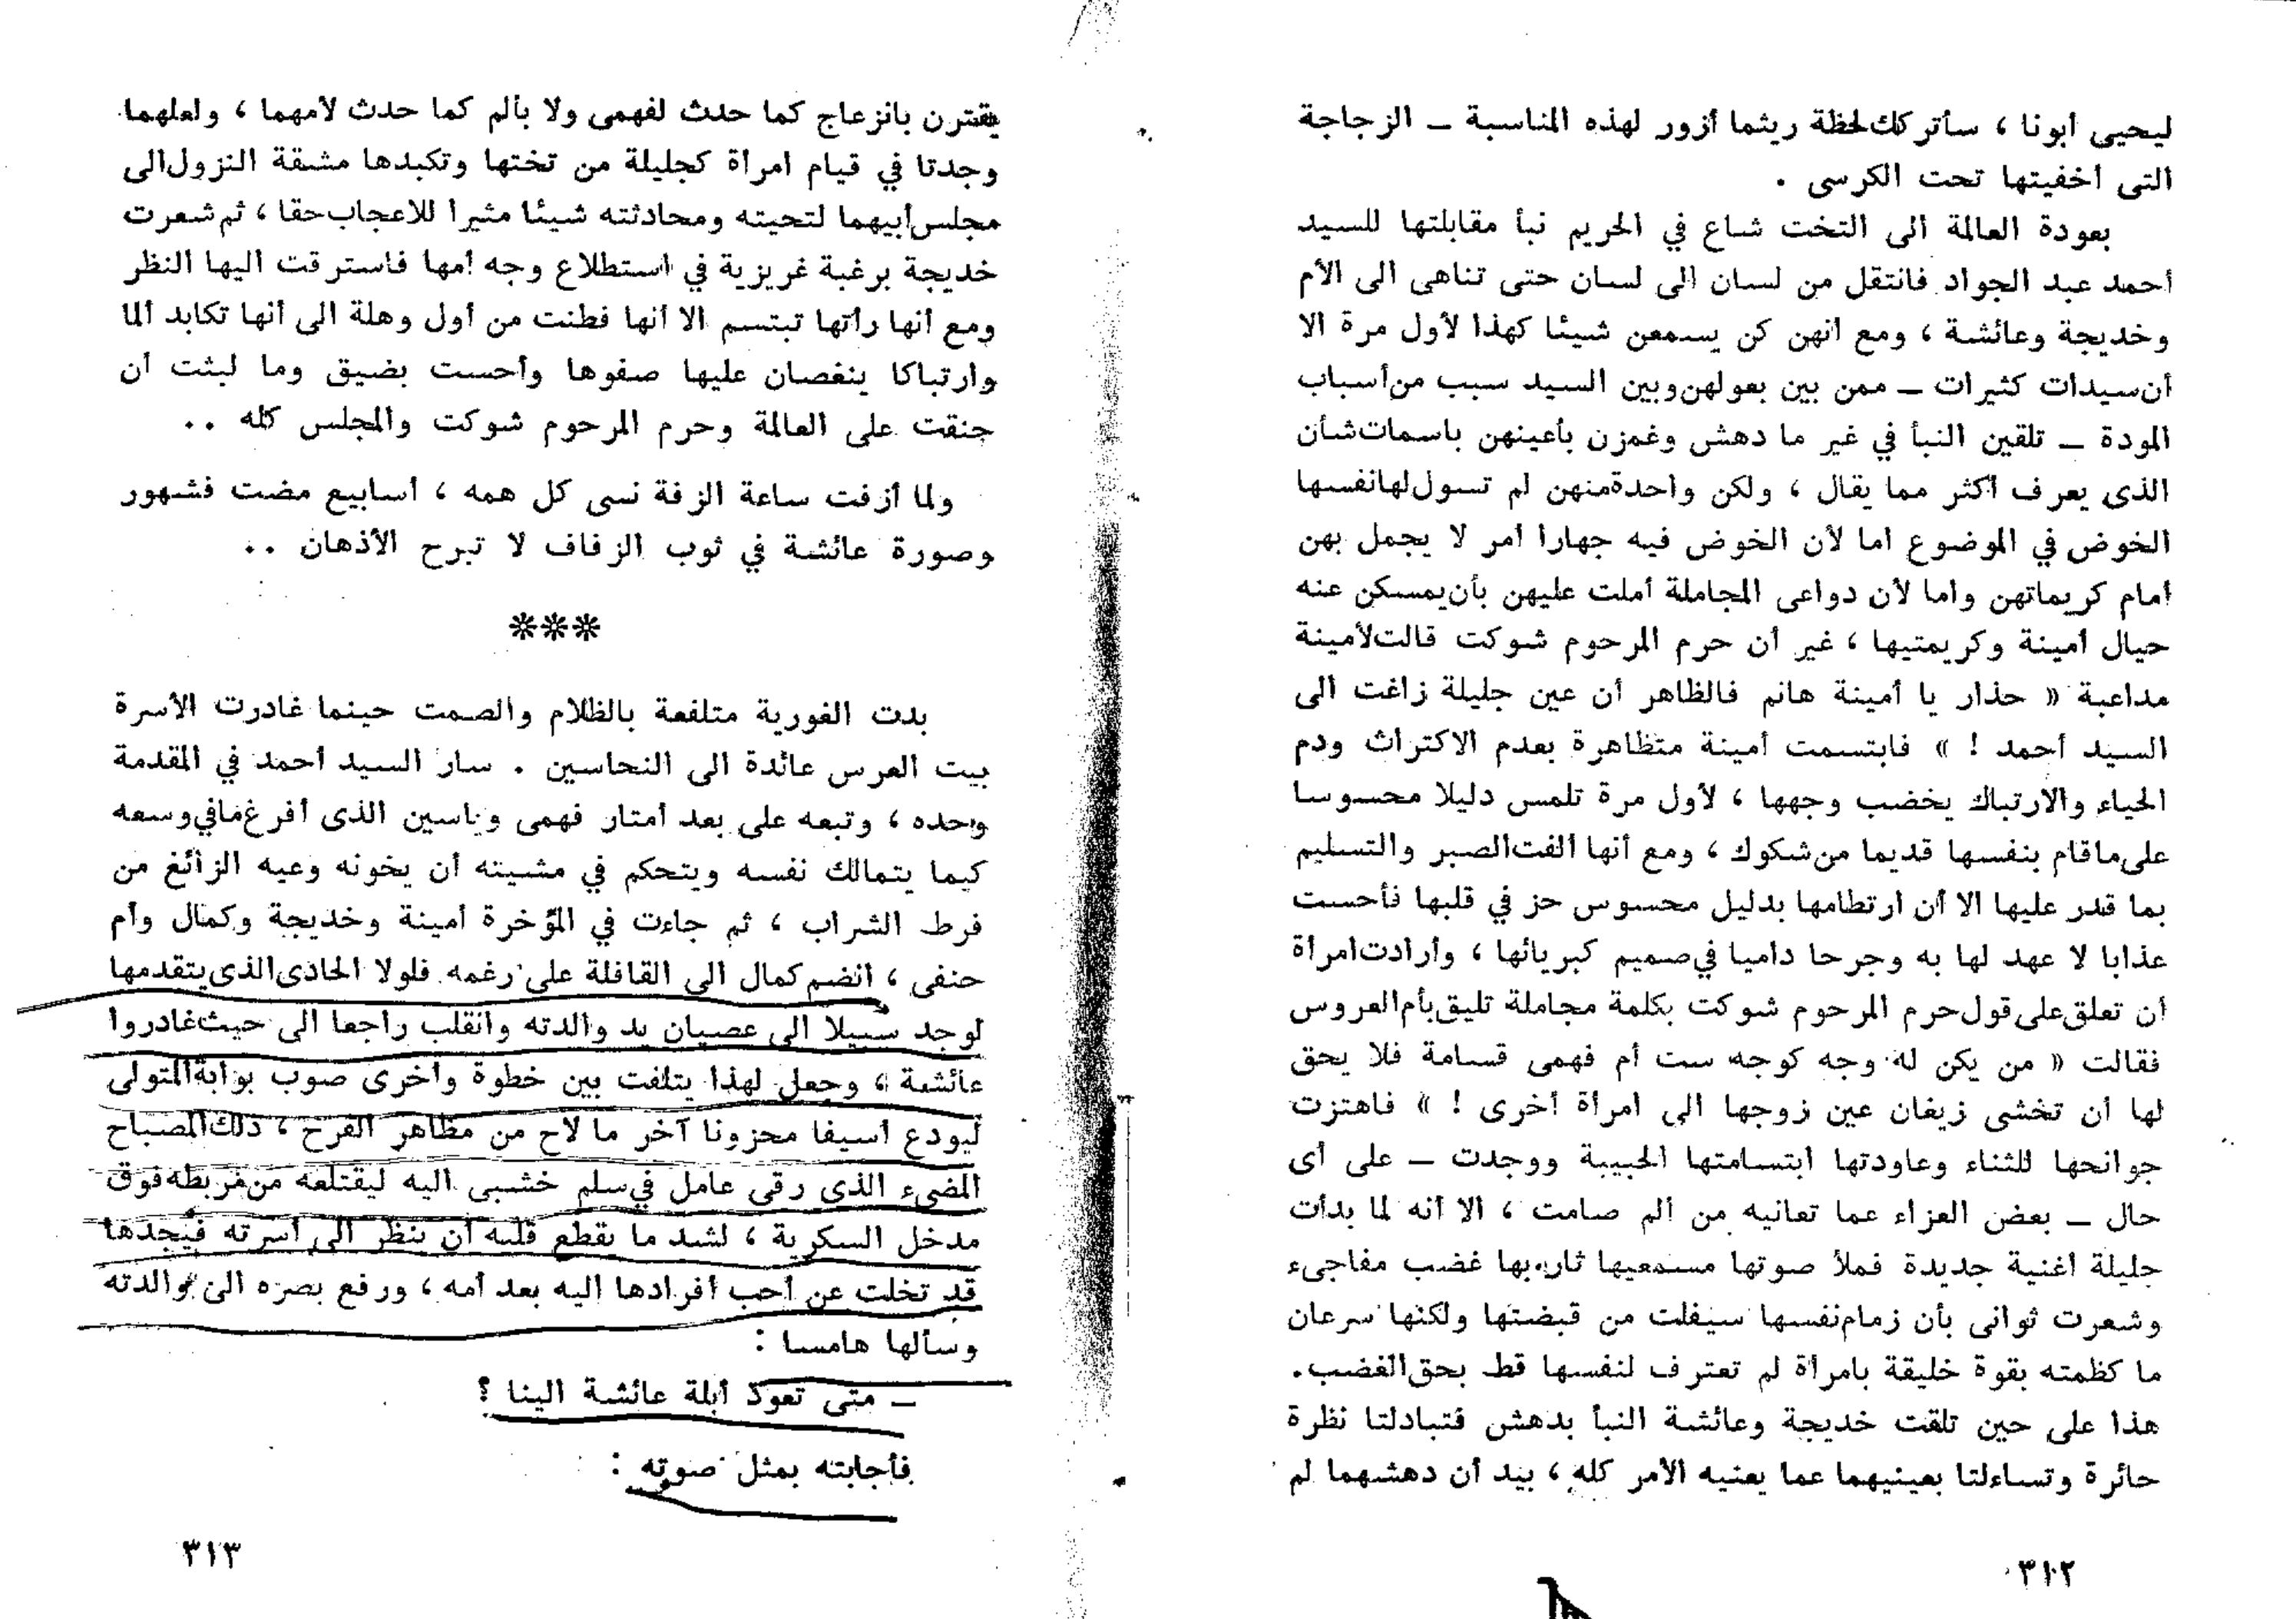 ليحيى أبونا ، سأتركك لحظة ريثما أزور لهذه المناسبة ــ الزجاجة
التى أخفيتها تحت الكرسى .
بعودة العالمة الى التخت شاع في الحريم نبأ مقابلتها للسيد
أحمد عبد الجواد فانتقل من لسان الى لسان حتى تناهى الى الأم
وخديجة وعائشة ، ومع انهن كن يسمعن شيئا كهذا لأول مرة الا
أن سيدات كثيرات ــ ممن بين بعولهن وبين السيد سبب من أسباب
المودة ــ تلقين النبأ في غير ما دهش وغمزن بأعينهن باسمات شأن
الذى يعرف أكثر مما يقال ، ولكن واحدة منهن لم تسول لها نفسها
الخوض في الموضوع اما لأن الخوض فيه جهارا أمر لا يجمل بهن
أمام كريماتهن واما لأن دواعى المجاملة أملت عليهن بأن يمسكن عنه
حيال أمينة وكريمتيها ، غير أن حرم المرحوم شوكت قالت لأمينة
مداعبة « حذار يا أمينة هانم فالظاهر أن عين جليلة زاغت الى
السيد أحمد ! » فابتسمت أمينة متظاهرة بعدم الاكتراث ودم
الحياء والارتباك يخضب وجهها ، لأول مرة تلمس دليلا محسوسا
على ما قام بنفسها قديما من شكوك ، ومع أنها ألفت الصبر والتسليم
بما قدر عليها الا أن ارتطامها بدليل محسوس حز في قلبها فأحست
عذابا لا عهد لها به وجرحا داميا في صميم كبريائها ، وأرادت امرأة
أن تعلق على قول حرم المرحوم شوكت بكلمة مجاملة تليق بأم العروس
فقالت « من يكن له وجه كوجه ست أم فهمى قسامة فلا يحق
لها أن تخشى زيغان عين زوجها الى امرأة أخرى ! » فاهتزت
جوانحها للثناء وعاودتها ابتسامتها الحبيبة ووجدت ــ على أى
حال ــ بعض العزاء عما تعانيه من ألم صامت ، الا أنه لما بدأت
جليلة أغنية جديدة فملأ صوتها مسمعيها ثار بها غضب مفاجىء
وشعرت ثوانى بأن زمام نفسها سيفلت من قبضتها ولكنها سرعان
ما كظمته بقوة خليقة بامرأة لم تعترف لنفسها قط بحق الغضب.
هذا على حين تلقت خديجة وعائشة النبأ بدهش فتبادلتا نظرة
حائرة وتساءلتا بعينيهما عما يعنيه الأمر كله ، بيد أن دهشهما لم
٣١٢
يقترن بانزعاج كما حدث لفهمى ولا بألم كما حدث لأمهما ، ولعلهما
وجدتا في قيام امرأة كجليلة من تختها وتكبدها مشقة النزول الى
مجلس أبيهما لتحيته ومحادثته شيئا مثيرا للاعجاب حقا ، ثم شعرت
خديجة برغبة غريزية في استطلاع وجه أمها فاسترقت اليها النظر
ومع أنها رأتها تبتسم الا أنها فطنت من أول وهلة الى أنها تكابد ألما
وارتباكا ينغصان عليها صفوها وأحست بضيق وما لبثت أن
حنقت على العالمة وحرم المرحوم شوكت والمجلس كله ..
ولما أزفت ساعة الزفة نسى كل همه ، أسابيع مضت فشهور
وصورة عائشة في ثوب الزفاف لا تبرح الأذهان ..
***
بدت الغورية متلفعة بالظلام والصمت حينما غادرت الأسرة
بيت العرس عائدة الى النحاسين . سار السيد أحمد في المقدمة
وحده ، وتبعه على بعد أمتار فهمى وياسين الذى أفرغ ما في وسعه
كيما يتمالك نفسه ويتحكم في مشيته أن يخونه وعيه الزائغ من
فرط الشراب ، ثم جاءت في المؤخرة أمينة وخديجة وكمال وأم
حنفى ، انضم كمال الى القافلة على رغمه فلولا الحادى الذى يتقدمها
لوجد سبيلا الى عصيان يد والدته وانقلب راجعا الى حيث غادروا
عائشة ، وجعل لهذا يتلفت بين خطوة وأخرى صوب بوابة المتولى
ليودع أسيفا محزونا آخر ما لاح من مظاهر الفرح ، ذلك المصباح
المضىء الذى رقى عامل في سلم خشبى اليه ليقتلعه من مربطه فوق
مدخل السكرية ، لشد ما يقطع قلبه أن ينظر الى أسرته فيجدها
قد تخلت عن أحب أفرادها اليه بعد أمه ، ورفع بصره الى والدته
وسألها هامسا :
ــ متى تعود أبلة عائشة الينا ؟
فأجابته بمثل صوته :
٣١٣